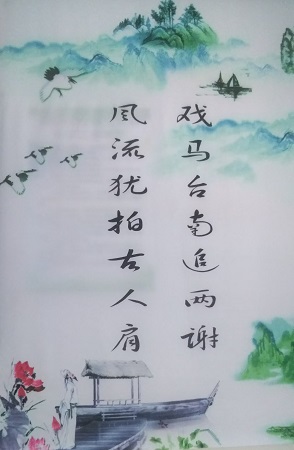 戏马台南追两谢
风流犹拍古人肩